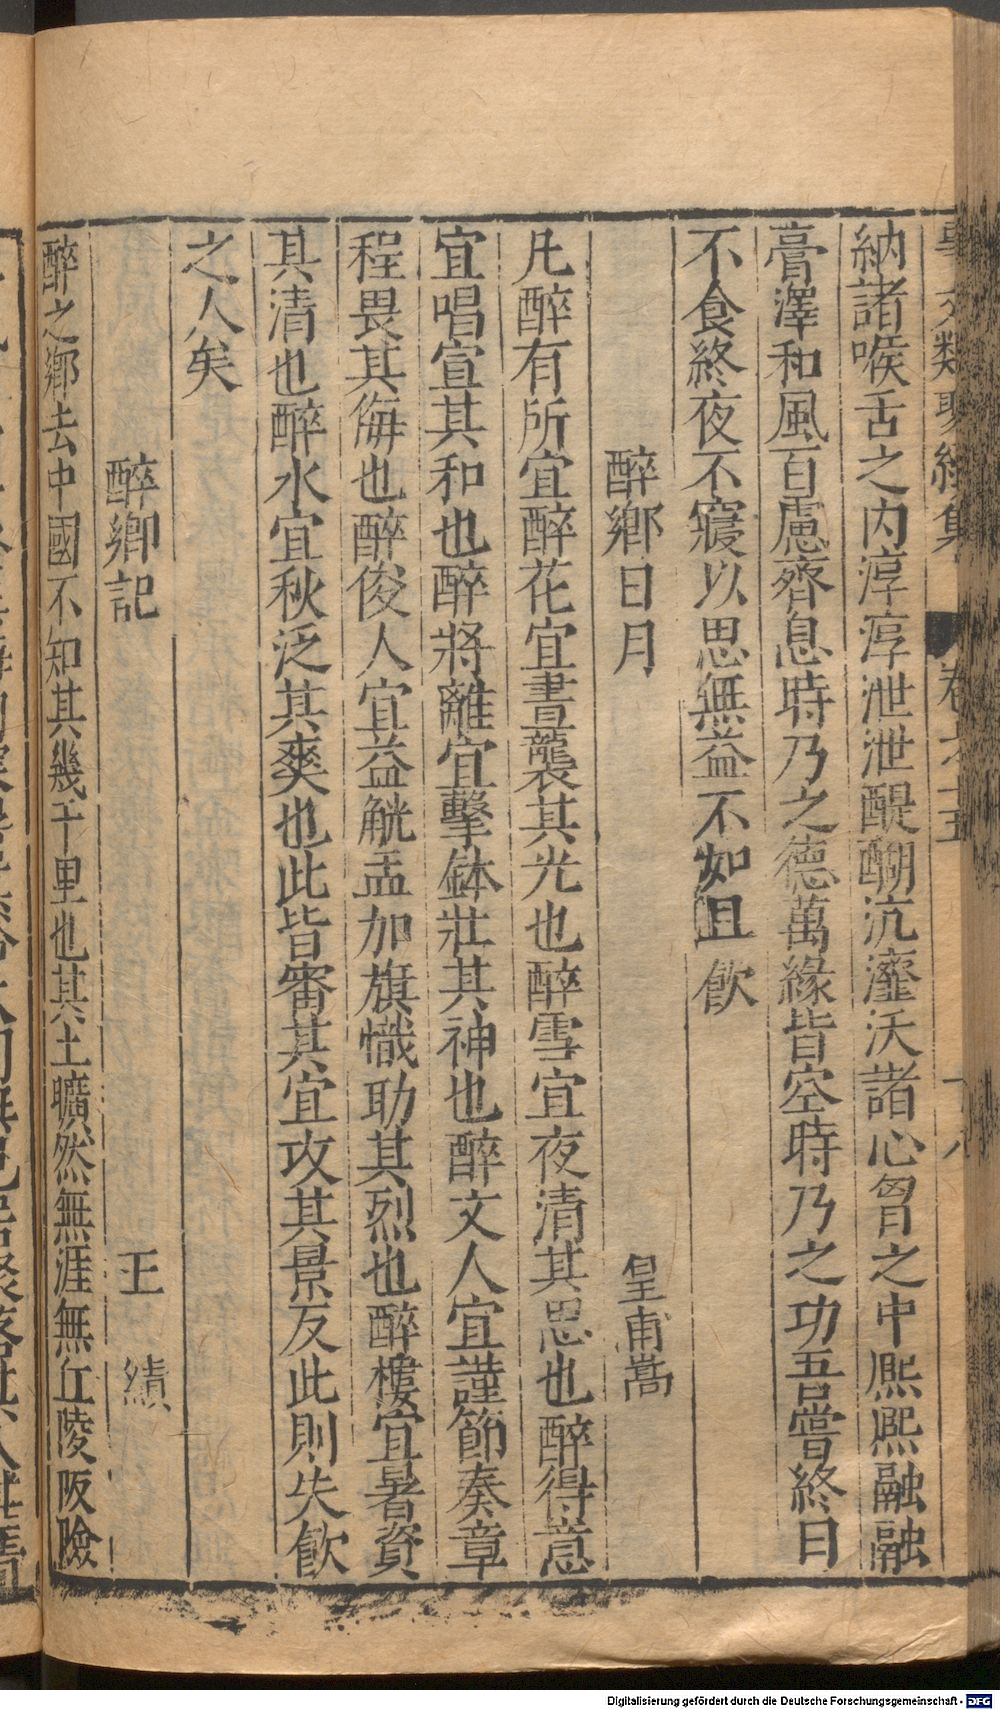 納諸喉舌之内淳淳泄泄醍醐沆瀣沃諸心胷之中熈熈融融
膏澤和風百慮齊息時乃之德萬緣皆空時乃之功吾嘗終日
不食終夜不寢以思無益不如且飲
醉鄉日月 皇甫嵩
凡醉有所宜醉花宜晝襲其光也醉雪宜夜清其思也醉得意
宜唱宣其和也醉將離宜擊鉢壯其神也醉文人宜謹節奏章
程畏其侮也醉俊人宜益觥盂加旗幟助其烈也醉樓宜暑資
其清也醉水宜秋泛其爽也此皆審其宜攻其景反此則失飲
之人矣
醉鄉記 王績
醉之鄉去中國不知其幾千里也其土曠然無涯無丘陵阪險
Digitalisierung gefördert durch die Deutsche Forschungsgemeinschaft - DFG